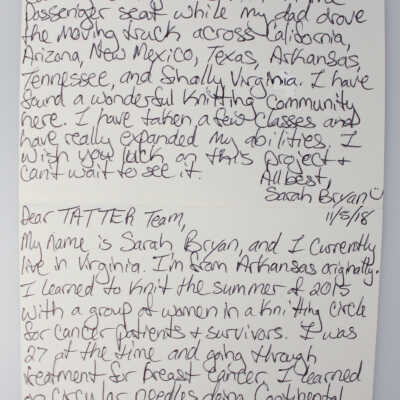 passenger seat while my dad drove
the moving truck across California,
Arizona, New Mexico, Texas, Arkansas,
Tennessee, and finally Virginia. I have
found a wonderful knitting community
here. I have taken a few classes and
have really expanded my abilities. I
wish you luck on this project +
can't wait to see it. All best,
Sarah Bryan
11/5/18
Dear TATTER Team,
My name is Sarah Bryan, and I currently
live in Virginia. I'm from Arkansas originally.
I learned to knit the summer of 2015
with a group of women in a knitting circle
for cancer patients + survivors. I was
27 at the time and going through
treatment for breast cancer. I learned
on circular needles doing Continental